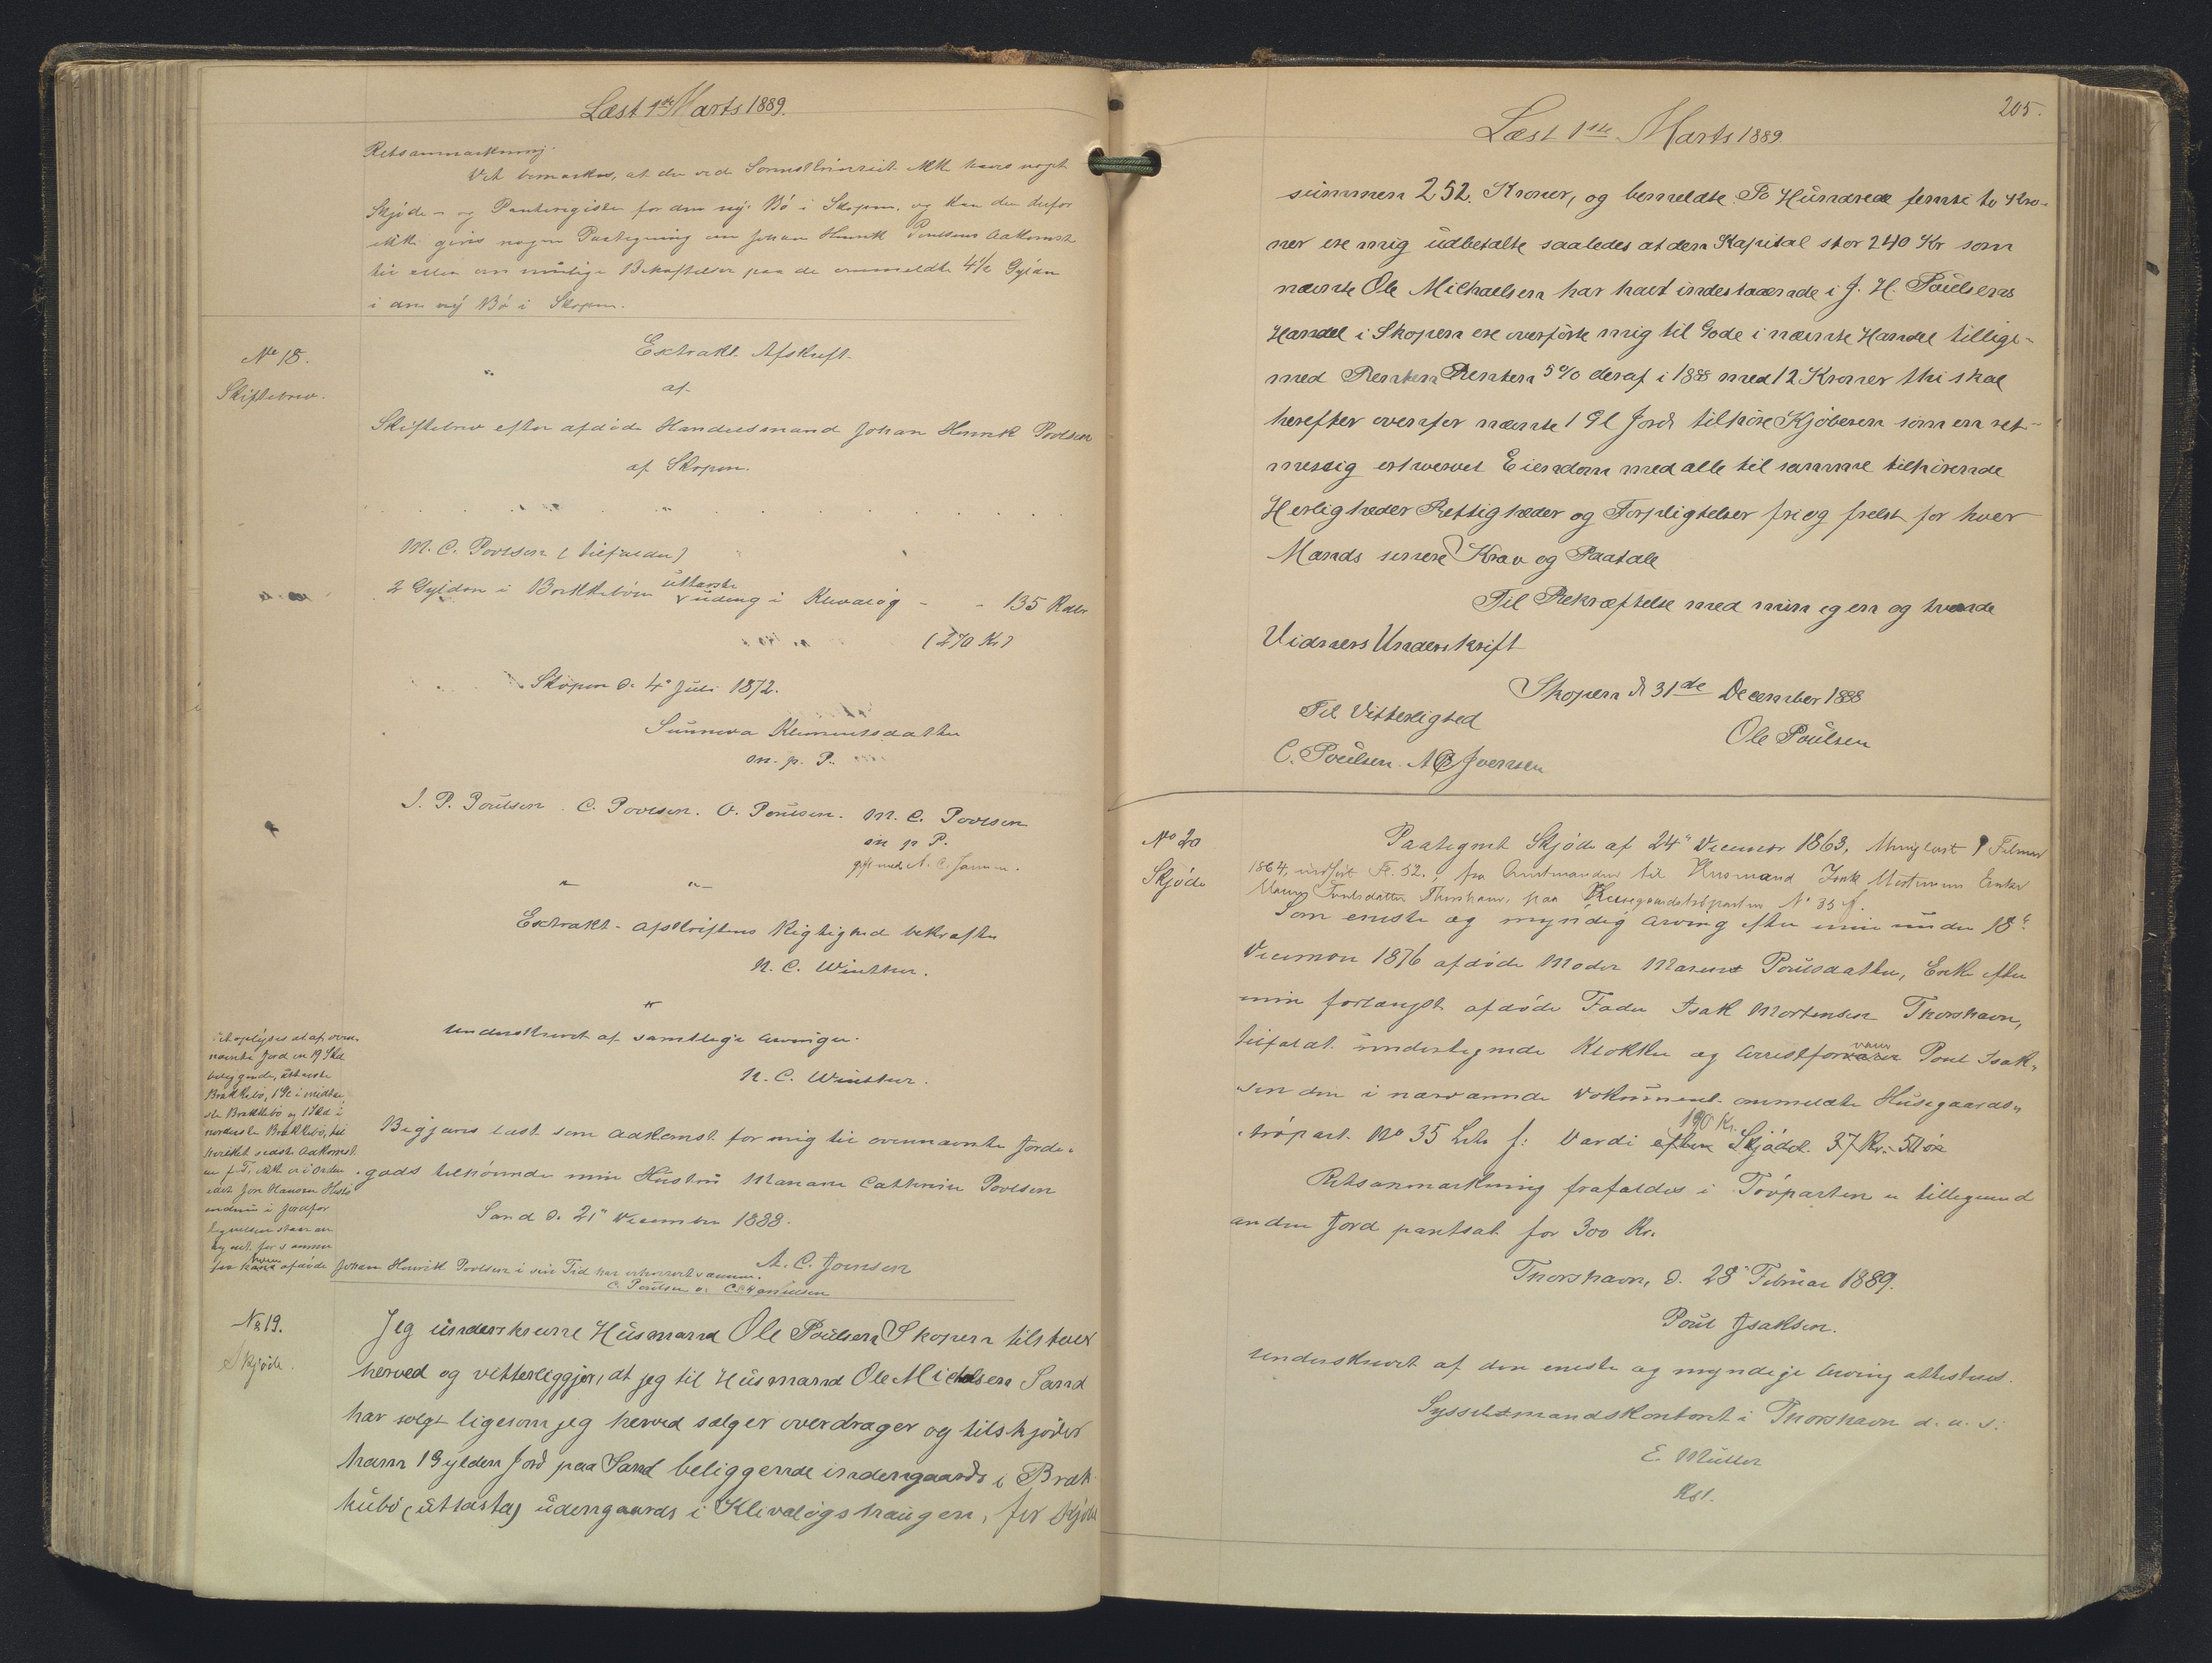 Læst 1ste Marts 1889.
Retsanmærkning.
Det bemærkes, at der ved Sorenskriveriet ikke haves noget
Skjøde- og Panteregister for den nye Bö i Skopen, og kan der derfor
ikke gives nogen Paategning om Johan Henrik Poulsens Adkomst
til eller om mulige Behæftelser paa de ommeldte 4½ Gylden
i den nÿ Bö i Skopen.
No 18.
Skiftebrev.
Extrakt Afskrift
af
Skiftebrev efter afdöde Handelsmand Johan Henrik Povlsen
af Skopen.
M. C. Povlsen (tilfalder)
2 Gylden i Brekkeböen ütterste üdeng i Klivalög - - 135 Rdlr
(270 Kr)
Skopen d. 4de Juli 1872.
Sunneva Klementsdatter
m. p. P.
J. P. Poülsen. C. Povlsen. O. Poülsen. M. C. Povlsen
m p P.
gift med A. C. Joensen.
Extrakt-Afskriftens Rigtighed bekræfter
N. C. Winther.
Underskrevet af samtlige Arvinger.
N. C. Winther.
Det oplÿses at af oven-
nævnte Jord er 19 Skd
beliggende, ütterste
Brekkebö, 1 Gl i midter-
ste Brekkebö og 1 Skd i
nordeste Brekkebö, til
hvilket sidste Adkomst
en f. T. ikke er i Orden
idet Jon Hansen Husto
endnü i Jordfor
tegnelsen staar an
tegnet for samme
Begjæres læst som Adkomst for mig til ovennævnte Jorde-
gods tilhörende min Hüstrü Mariane Cathrine Povlsen
Sand d. 21de December 1888.
A. C. Joensen
før hans afdøde Johan Henrik Povlsen i sin Tid har erhvervet samme.
C. Poülsen
No 19.
Skjøde.
Jeg ünderskrevne Hüsmand Ole Poülsen Skopen tilstaar
herved og vitterliggjör, at jeg til Hüsmand Ole Michelsen Sand
har solgt ligesom jeg herved sælger overdrager og tilskjöder
ham 1 Gylden Jord paa Sand beliggende indengaards i Bræk
kübö (üttasta) üdengaards i Klivalögshaügen, for Kjöbe
205.
Læst 1ste Marts 1889.
sümmen 252. Kroner, og bemeldte To Hündrede femti to Kro-
ner ere mig üdbetalte saaledes at den Kapital stor 240 Kr som
nævnte Ole Michaelsen har havt indestaaende i J. H. Poülsens
Handel i Skopen ere overförte mig til Gode i nævnte Handel tillige-
med Renten Renten 5% deraf i 1888 med 12 Kroner thi skal
herefter ovenfor nævnte 1 Gl Jord tilhöre Kjöberen som en ret-
messig erhvervet Eiendom med alle til samme tilhörende
Herligheder Rettigheder og Forpligtelser fri og frelst for hver
Mands senere Krav og Paatale
Til Bekræftelse med min egen og tvende
Vidners Underskrift
Skopen d 31de December 1888
Ole Poülsen
Til Vitterlighed
C. Poülsen. A P Joensen
No 20
Skjöde
Paategnet Skjöde af 24de December 1863, thinglæst 9 Februar
1864, indført Fl. 52., fra Amtmanden til Husmand Isak Mortensens Enke
Maren Poulsdatter Thorshavn, paa Husegaardstrøparten No 35 f.
Som eneste og myndig Arving efter min ünder 18de
December 1876 afdöde Moder Maren Poulsdatter, Enke efter
min forlængst afdöde Fader Isak Mortensen Thorshavn,
tilfaldt ündertegnede Klokker og Arrestforvarer Poul Isak-
sen den i nærværende Doküment ommeldte Hüsegaards-
tröpart No 35 Litr f: Værdi efter Skjödet 37 Kr. 50 öre
190 Kr.
Retsanmærkning frafaldes i Tröparten er tilligemed
anden Jord pantsat for 300 Kr.
Thorshavn, d. 28de Februar 1889.
Poül Isaksen.
Underskrevet af den eneste og myndige Arving attesteres.
Sysselmandskontoret i Thorshavn d. u. s.
E. Müller
Kst.